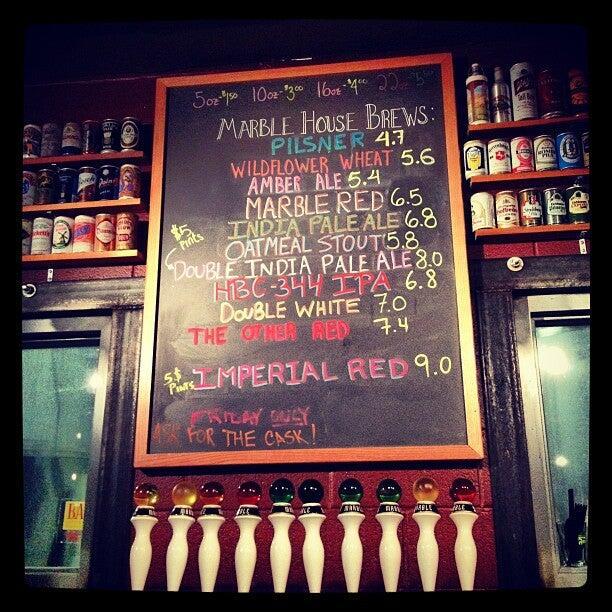 5oz-$1.50 10oz-$3.00 16oz-$4.00 22oz
MARBLE HOUSE BREWS:
PILSNER 4.7
WILDFLOWER WHEAT 5.6
AMBER ALE 5.4
MARBLE RED 6.5
INDIA PALE ALE 6.8
$5 Pints
OATMEAL STOUT 5.8
DOUBLE INDIA PALE ALE 8.0
HBC-344 IPA 6.8
DOUBLE WHITE 7.0
THE OTHER RED 7.4
5$ Pints
IMPERIAL RED 9.0
FRIDAY ONLY
ASK FOR THE CASK!